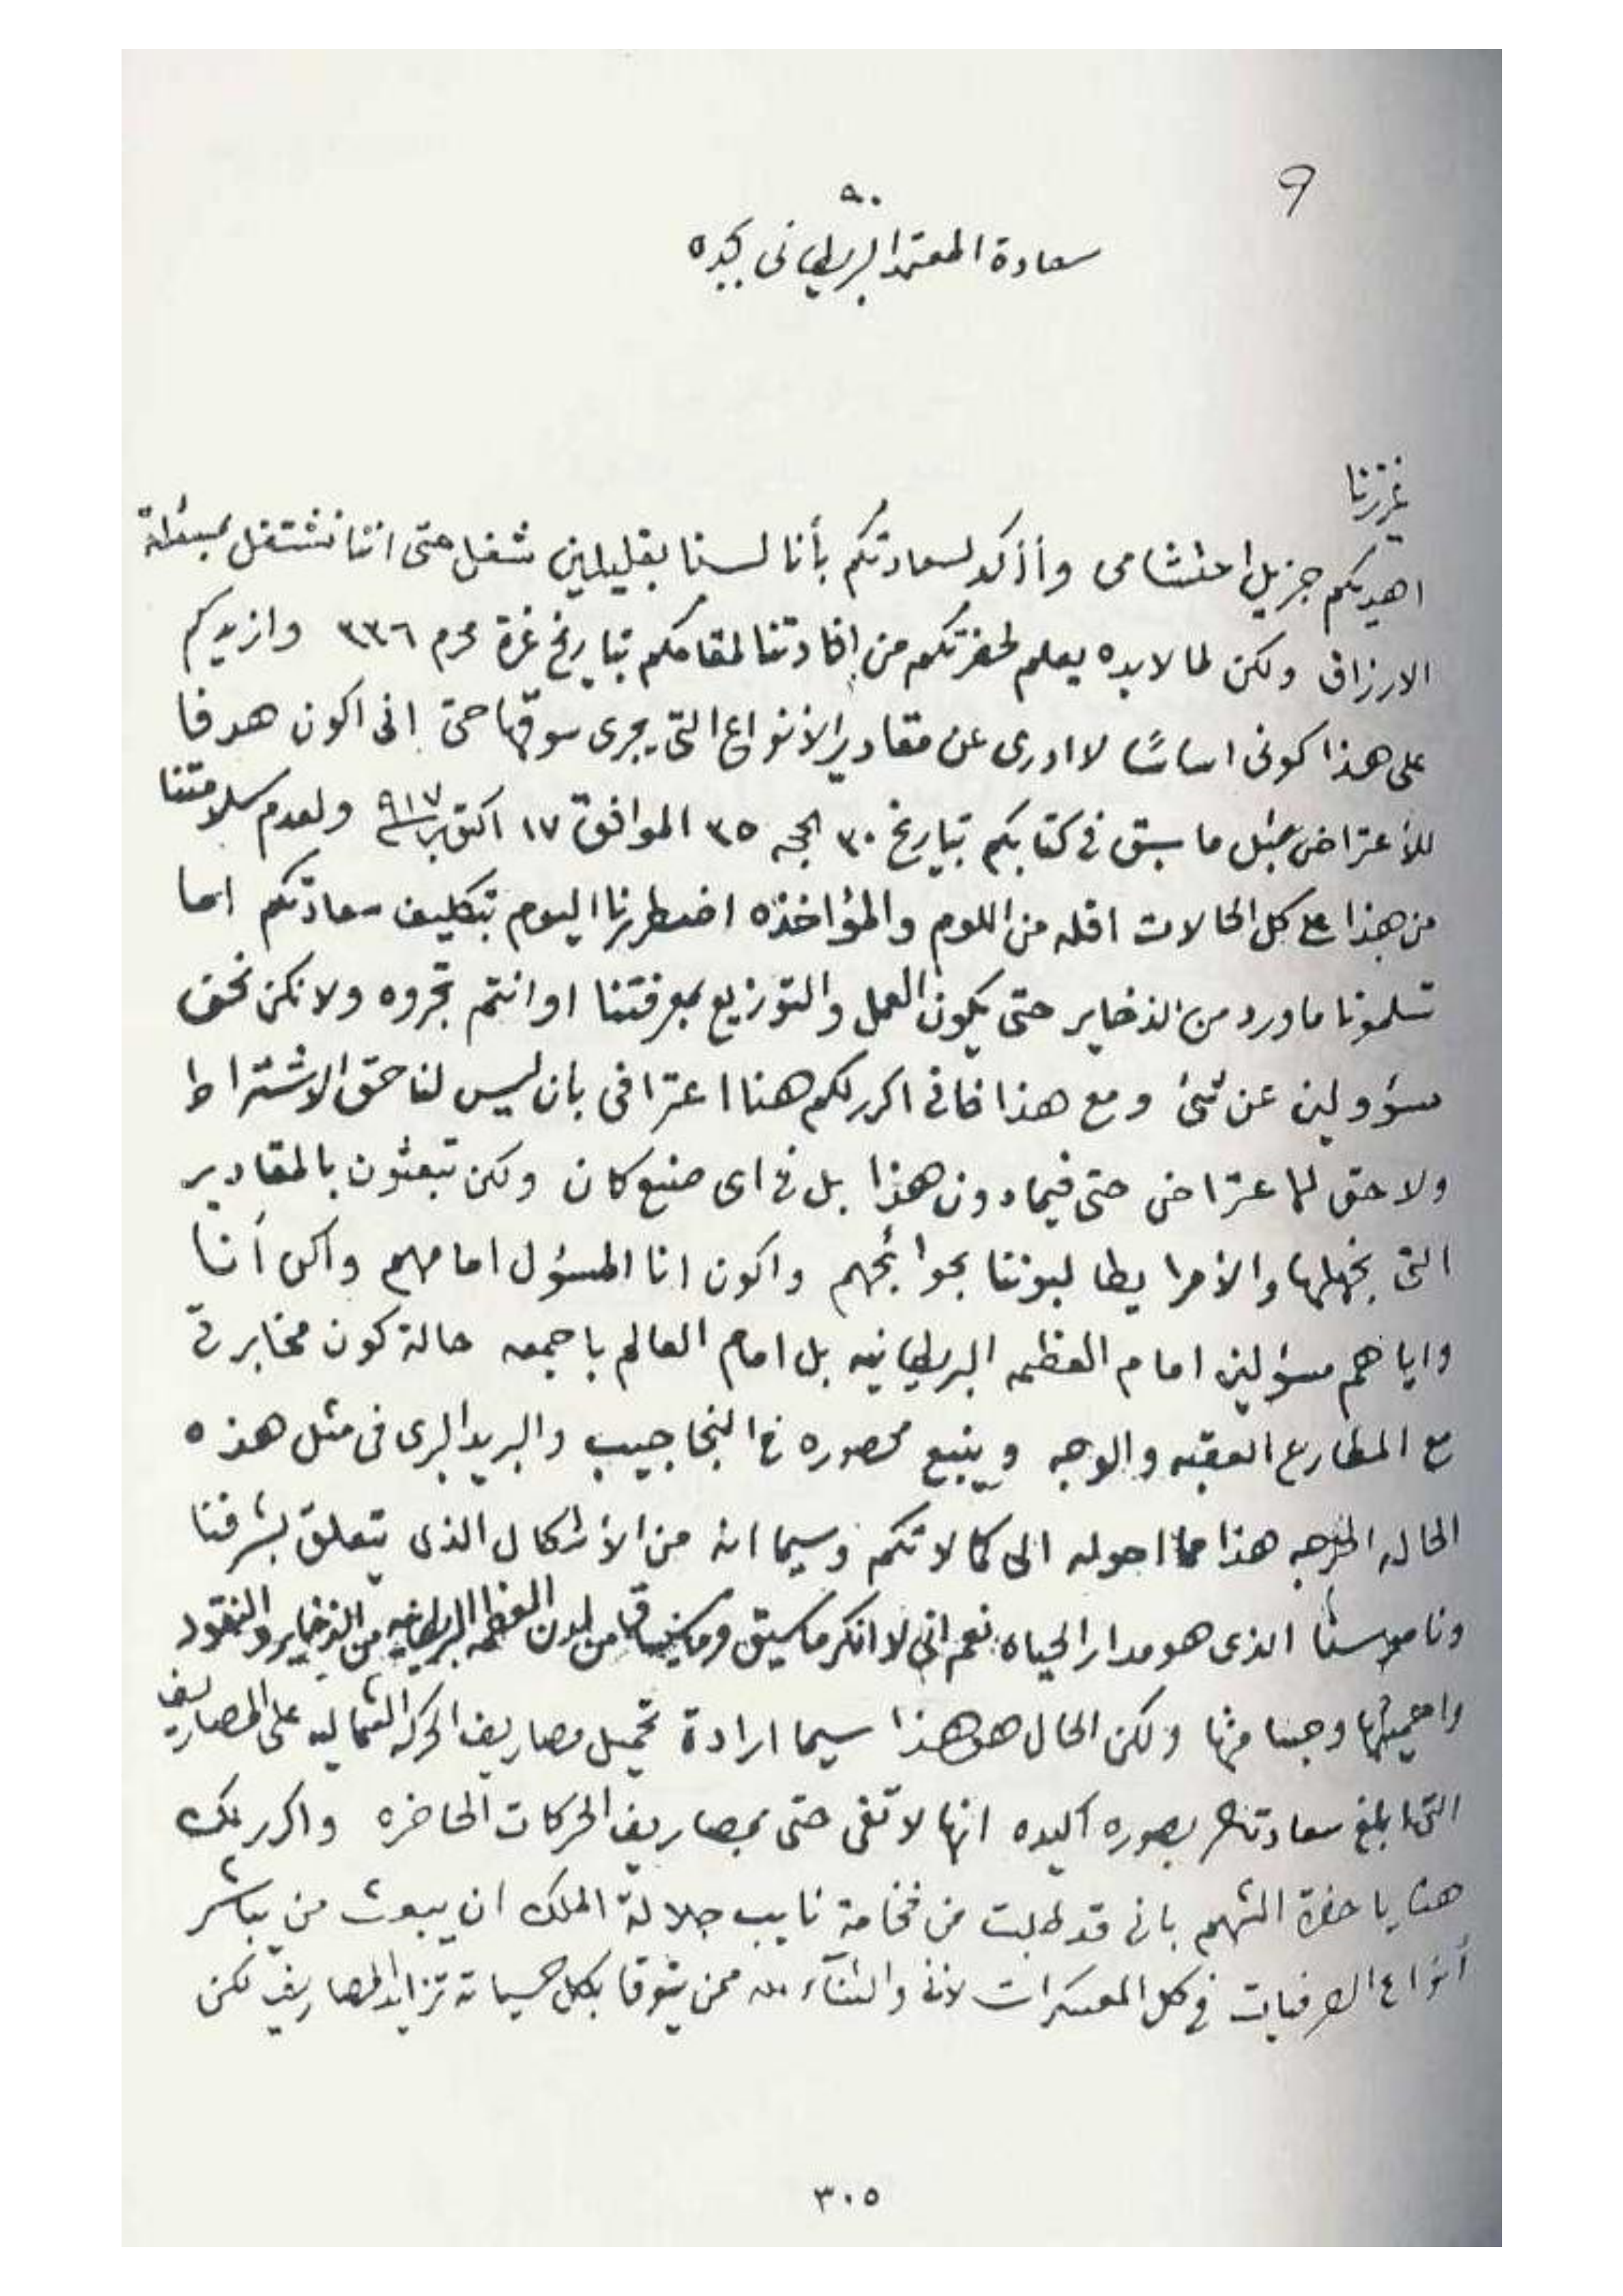 9
٩٠
سعادة المعتمد البريطاني بجده
عزيزنا
اهديكم جزيل احتشامى وأأكد لسعادتكم بأنا لسنا بقليلين شغل حتى اننا نشتغل بمسئلة
الارزاق ولكن لما لابده يعلم لحضرتكم من إفادتنا لمقامكم بتاريخ غرة محرم ٣٣٦ وازيدكم
على هذا كونى اساسًا لا ادرى عن مقادير الأنواع التى يجرى سوقها حتى انى اكون هدفا
للأعتراض بمثل ما سبق فى كتابكم بتاريخ ٣٠ الحجه ٣٥ الموافق ١٧ اكتوبر ٩١٧ ولعدم سلامتنا
من هذا على كل الحالات اقله من اللوم والمؤاخذه اضطرنا اليوم بتكليف سعادتكم اما
تسلمونا ما ورد من الذخاير حتى يكون العمل والتوزيع بمعرفتنا او انتم تجروه ولا نكن نحن
مسؤولين عن شئ ومع هذا فانى اكرر لكم هنا اعترافى بان ليس لنا حق الاشتراط
ولا حق للاعتراض حتى فيما دون هذا بل فى اى صنيع كان ولكن تبعثون بالمقادير
التى نجهلها والأمرا يطالبوننا بحوائجهم واكون انا المسؤل امامهم واكن أنا
واياهم مسؤلين امام العظمه البريطانيه بل امام العالم باجمعه حالة كون مخابرتى
مع العقبه والوجه وينبع محصوره فى النجاجيب والبريد البرى فى مثل هذه
الحاله الحرجه هذا مما احوله الى كمالاتكم وسيما انه من الأشكال الذى يتعلق بشرفنا
وناموسنا الذى هو مدار الحياه نعم انى لا انكر ما سبق وما من لدن العظمه البريطانيه من الذخاير والنقود
واهميتها وجسامتها ولكن الحال هو هذا سيما ارادة تحميل مصاريف الحركه الشماليه على المصاريف
التى ابلغ سعادتكم بصوره اكيده انها لا تفى حتى بمصاريف الحركات الحاضره واكرر لك
هنا يا حضرة الشهم بانى قد طلبت من فخامة نايب جلالة الملك ان يبعث من يباشر
أنواع الصرفيات فى كل المعسكرات لانى والثناء لله ممن يتوقا بكل حسياته تزايد المصاريف لكن
٣٠٥